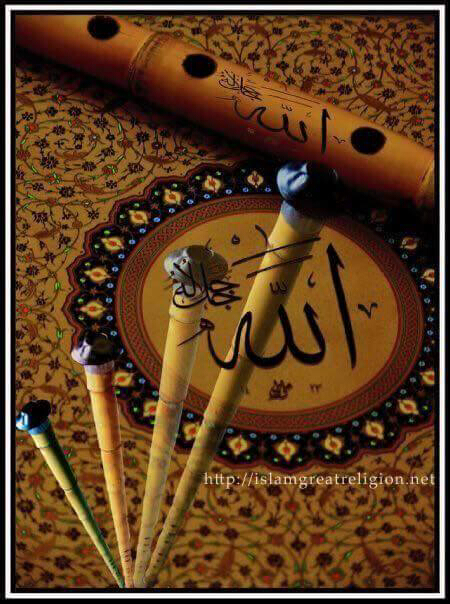 الله جل جلاله
الله جل جلاله
http://islamgreatreligion.net